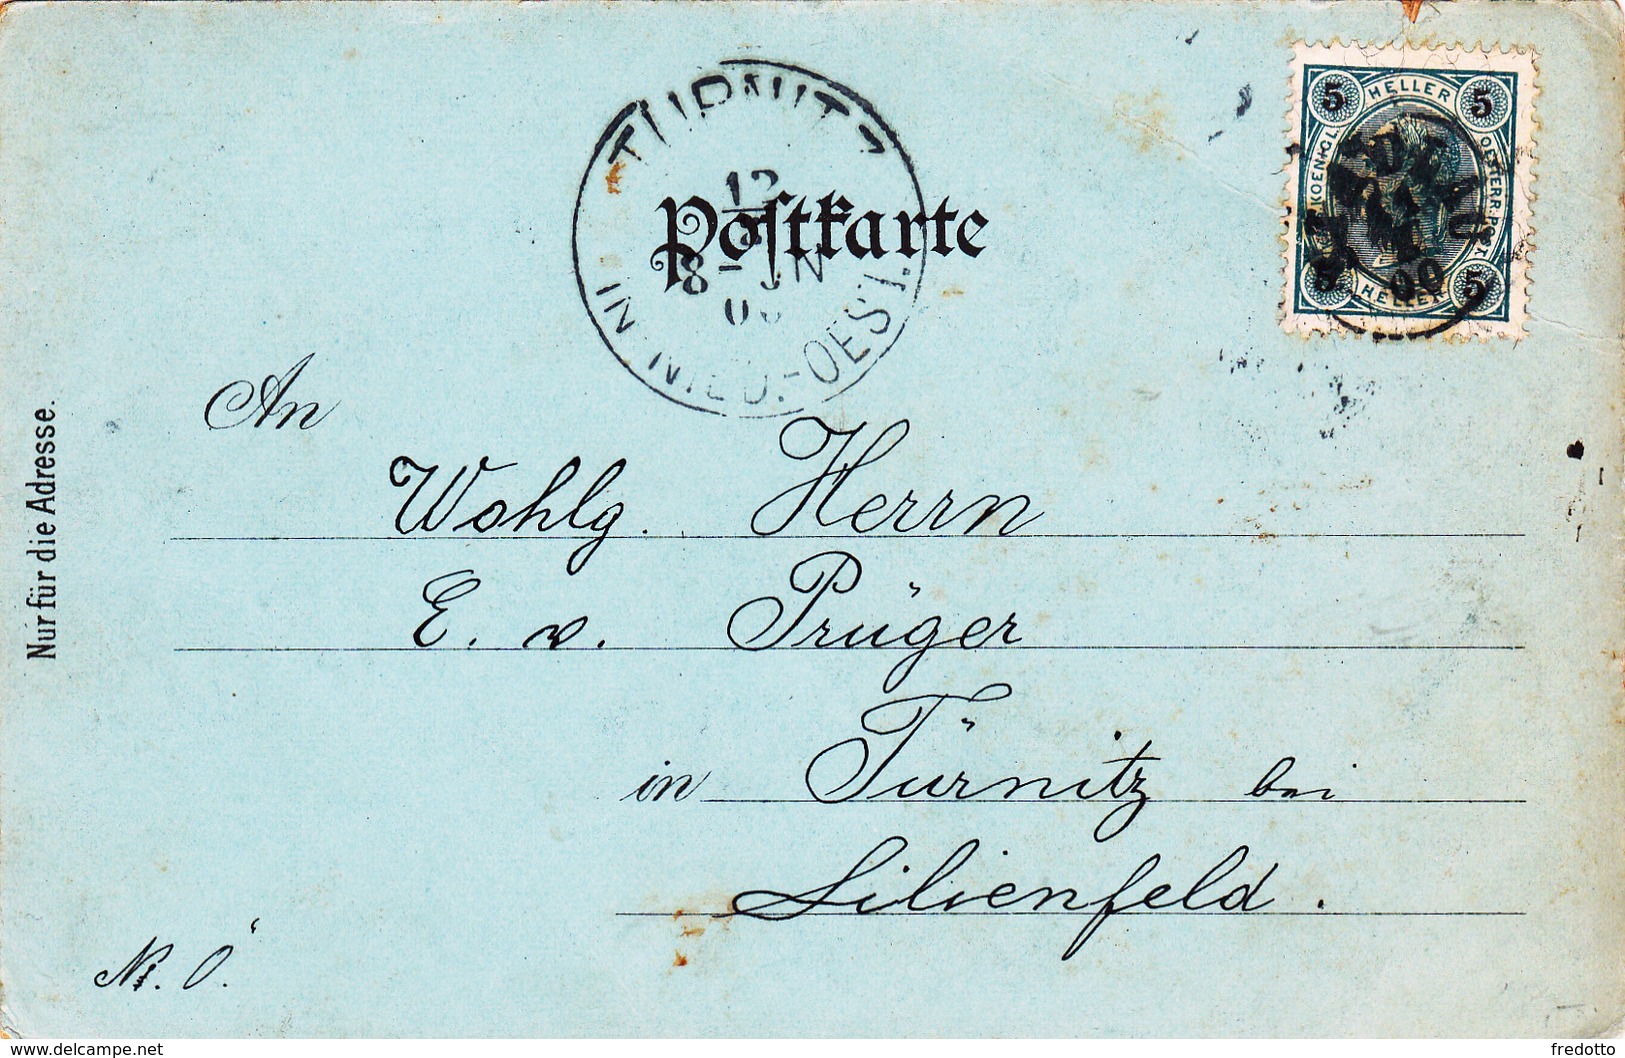 TÜRNITZ
12
8 - VN
IN NIED.-OEST.
Postkarte
5 HELLER 5
KOENIGL.
OESTERR. POST.
5 HELLER 5
00
Nur für die Adresse.
An
Wohlg. Herrn
E. v. Prüger
in Türnitz bei
Lilienfeld.
N. Ö.
delcampe.net
fredotto